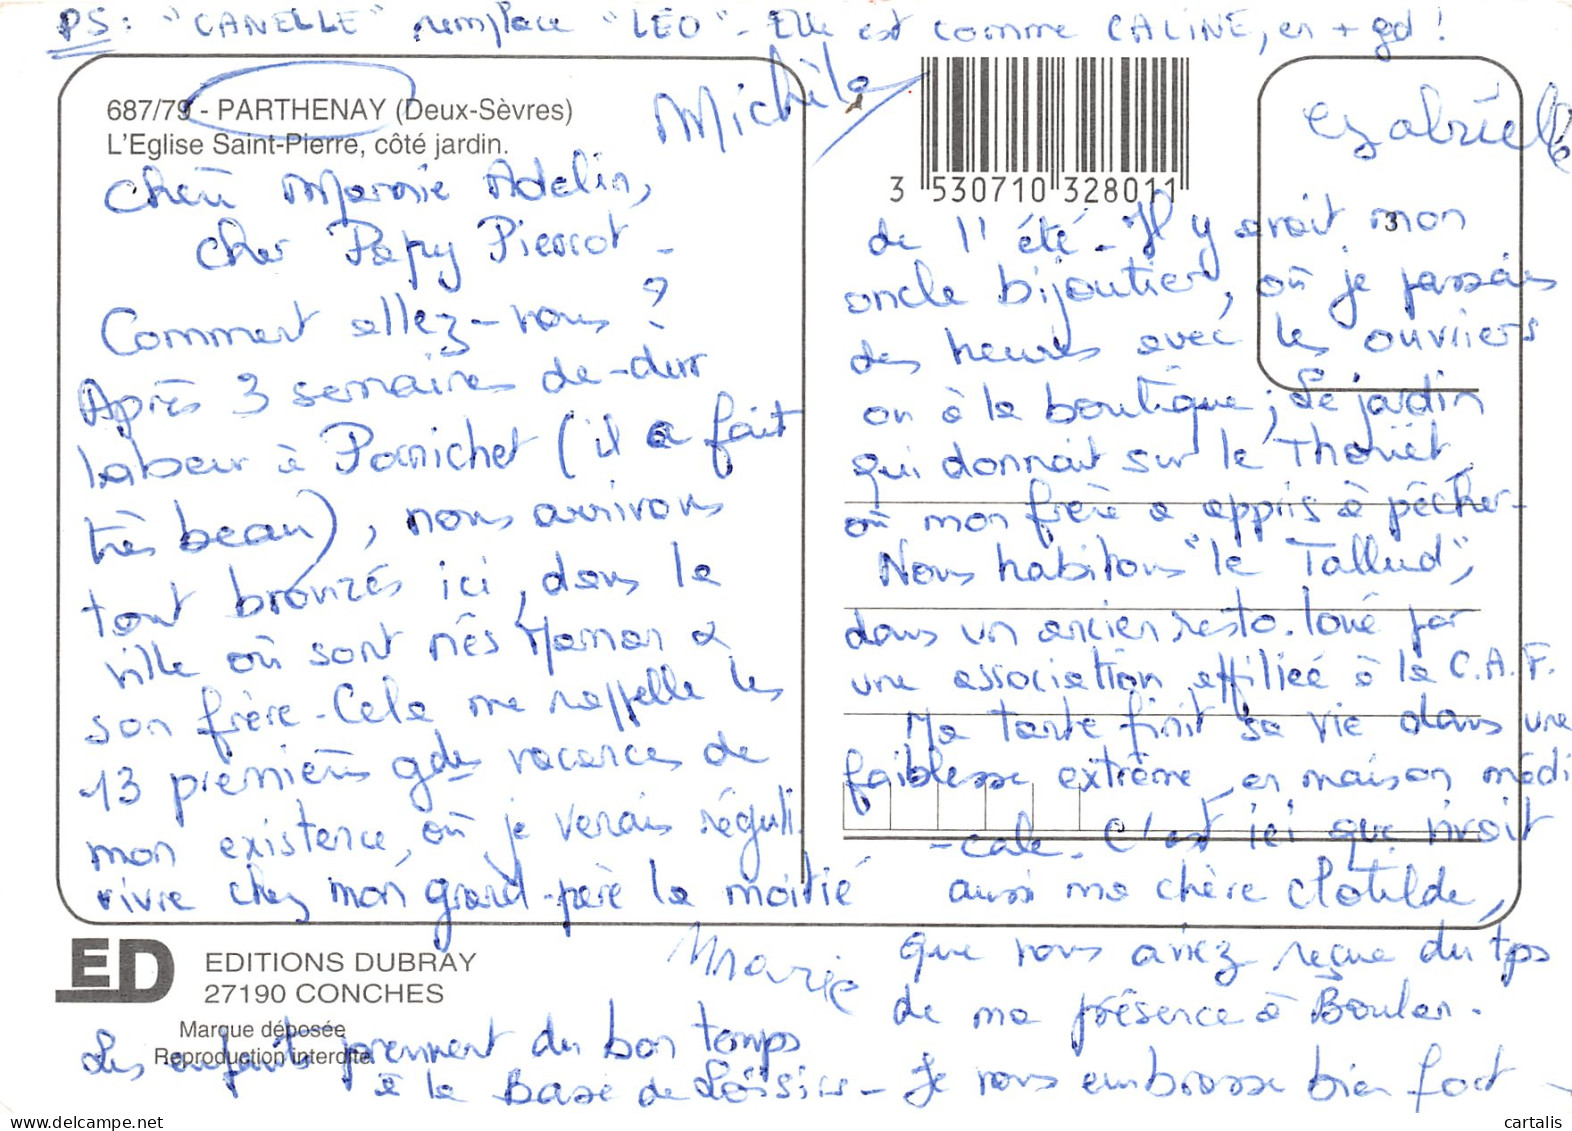 PS: "CANELLE" remplace "LEO" - Elle est comme CALINE, en + gd !
687/79 - PARTHENAY (Deux-Sèvres)
L'Eglise Saint-Pierre, côté jardin.
Michèle
3 530710 328011
Gabrielle
3
Chère Mamie Adelin,
cher Papy Pierrot -
Comment allez-vous ?
Après 3 semaines de dur
labeur à Pornichet (il a fait
très beau), nous arrivons
tout bronzés ici, dans la
ville où sont nés Maman &
son frère - Cela me rappelle les
13 premières gdes vacances de
mon existence, où je venais réguli.
vivre chez mon grand-père la moitié
de l'été - Il y avait mon
oncle bijoutier, où je passais
des heures avec les ouvriers
ou à la boutique ; Le jardin
qui donnait sur le Thouet
où mon frère a appris à pêcher -
Nous habitons "le Tallud",
dans un ancien resto. loué par
une association affiliée à la C.A.F.
Ma tante finit sa vie dans une
faiblesse extrême, en maison médi
-cale. C'est ici que vivait
aussi ma chère Clotilde,
que vous aviez reçue du tps
de ma présence à Boulon.
Marie
ED
EDITIONS DUBRAY
27190 CONCHES
Marque déposée
Reproduction interdite
Les enfants prennent du bon temps
à la Base de Loisirs - Je vous embrasse bien fort -
www.cartalis.com
cartalis